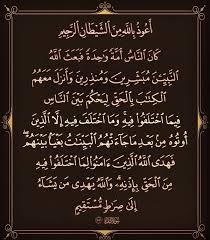 أَعُوذُ بِاللَّهِ مِنَ الشَّيْطَانِ الرَّجِيمِ
كَانَ النَّاسُ أُمَّةً وَاحِدَةً فَبَعَثَ اللَّهُ
النَّبِيِّينَ مُبَشِّرِينَ وَمُنذِرِينَ وَأَنزَلَ مَعَهُمُ
الْكِتَابَ بِالْحَقِّ لِيَحْكُمَ بَيْنَ النَّاسِ
فِيمَا اخْتَلَفُوا فِيهِ وَمَا اخْتَلَفَ فِيهِ إِلَّا الَّذِينَ
أُوتُوهُ مِن بَعْدِ مَا جَاءَتْهُمُ الْبَيِّنَاتُ بَغْيًا بَيْنَهُمْ
فَهَدَى اللَّهُ الَّذِينَ ءَامَنُوا لِمَا اخْتَلَفُوا فِيهِ
مِنَ الْحَقِّ بِإِذْنِهِ وَاللَّهُ يَهْدِي مَن يَشَاءُ
إِلَى صِرَاطٍ مُّسْتَقِيمٍ